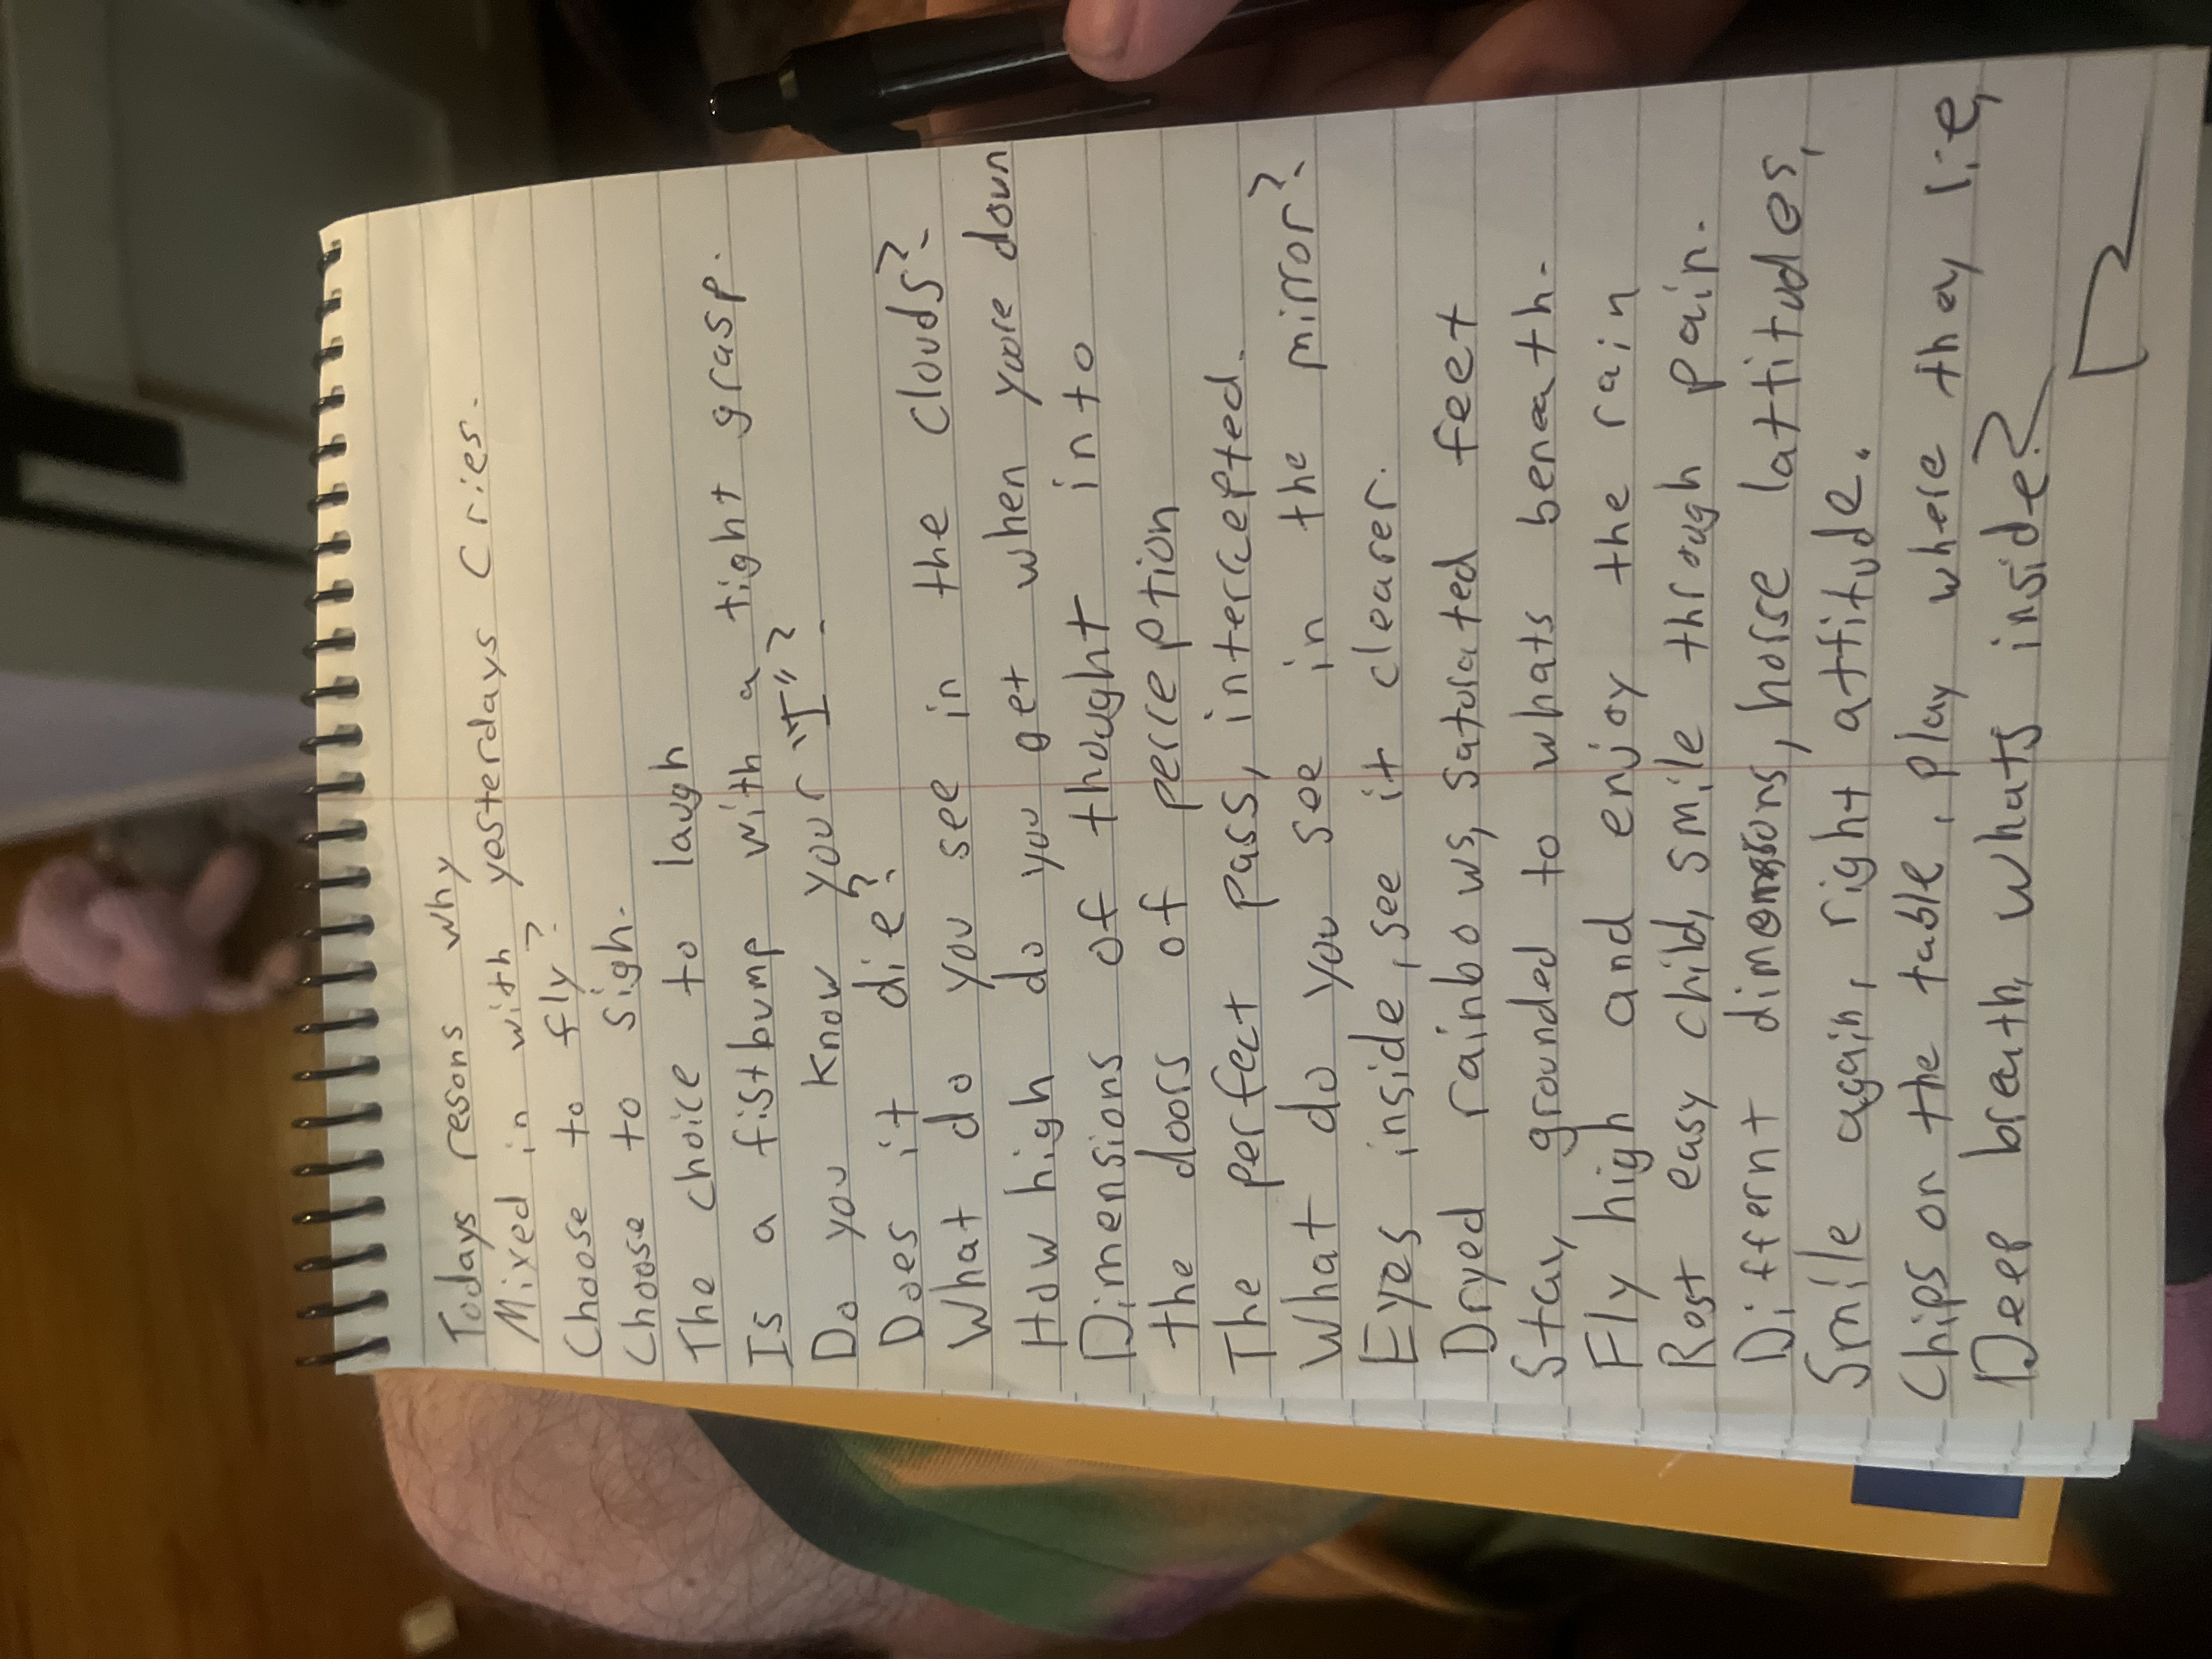 Todays resons why
Mixed in with yesterdays cries.
Choose to fly?
Choose to sigh.
The choice to laugh
Is a fistbump with a tight grasp.
Do you know your "I"?
Does it die?
What do you see in the clouds?
How high do you get when youre down
Dimensions of thought into
the doors of perception
The perfect pass, intercepted.
What do you see in the mirror?
Eyes inside, see it clearer.
Dryed rainbows, saturated feet
Stay grounded to whats beneath.
Fly high and enjoy the rain
Rest easy child, smile through pain.
Differnt dimensions, horse lattitudes,
Smile again, right attitude.
Chips on the table, play where they lie,
Deep breath, whats inside?